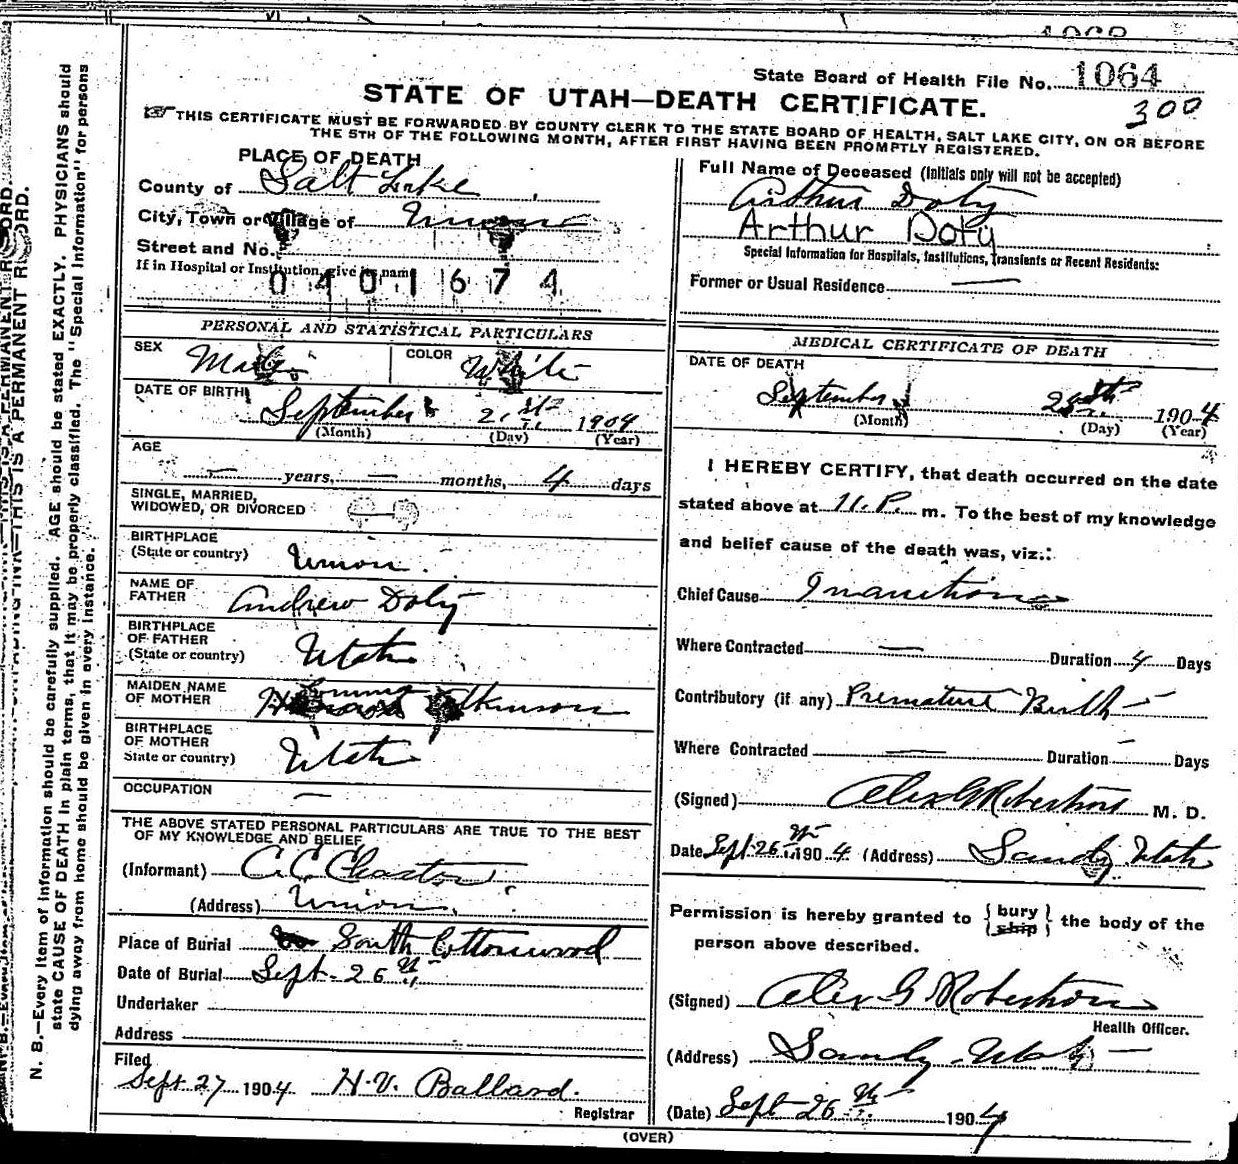 State Board of Health File No. 1064
300
STATE OF UTAH—DEATH CERTIFICATE.
THIS CERTIFICATE MUST BE FORWARDED BY COUNTY CLERK TO THE STATE BOARD OF HEALTH, SALT LAKE CITY, ON OR BEFORE
THE 5TH OF THE FOLLOWING MONTH, AFTER FIRST HAVING BEEN PROMPTLY REGISTERED.
PLACE OF DEATH
County of Salt Lake
City, Town or Village of Union
Street and No.
If in Hospital or Institution, give its name
0401674
Full Name of Deceased (Initials only will not be accepted)
Arthur Doty
Arthur Doty
Special Information for Hospitals, Institutions, Transients or Recent Residents:
Former or Usual Residence —
PERSONAL AND STATISTICAL PARTICULARS
SEX Male COLOR White
DATE OF BIRTH
September 21st 1904
(Month) (Day) (Year)
AGE
— years, — months, 4 days
SINGLE, MARRIED,
WIDOWED, OR DIVORCED
BIRTHPLACE
(State or country) Union
NAME OF
FATHER Andrew Doty
BIRTHPLACE
OF FATHER
(State or country) Utah
MAIDEN NAME
OF MOTHER Emma Atkinson
BIRTHPLACE
OF MOTHER
State or country) Utah
OCCUPATION —
THE ABOVE STATED PERSONAL PARTICULARS ARE TRUE TO THE BEST
OF MY KNOWLEDGE AND BELIEF
(Informant) C. C.
(Address) Union
Place of Burial South Cottonwood
Date of Burial Sept. 26th
Undertaker
Address
Filed
Sept 27 1904 H. V. Ballard.
Registrar
MEDICAL CERTIFICATE OF DEATH
DATE OF DEATH
September 25th 1904
(Month) (Day) (Year)
I HEREBY CERTIFY, that death occurred on the date
stated above at 11. P. m. To the best of my knowledge
and belief cause of the death was, viz.:
Chief Cause Inanition
Where Contracted — Duration 4 Days
Contributory (if any) Premature Birth —
Where Contracted — Duration — Days
(Signed) Alex G Robertson M. D.
Date Sept. 26th 1904 (Address) Sandy Utah
Permission is hereby granted to { bury ship } the body of the
person above described.
(Signed) Alex G Robertson
Health Officer.
(Address) Sandy Utah —
(Date) Sept 26th 1904
(OVER)
N. B.—Every item of information should be carefully supplied. AGE should be stated EXACTLY. PHYSICIANS should
state CAUSE OF DEATH in plain terms, that it may be properly classified. The "Special Information" for persons
dying away from home should be given in every instance.
THIS IS A PERMANENT RECORD.